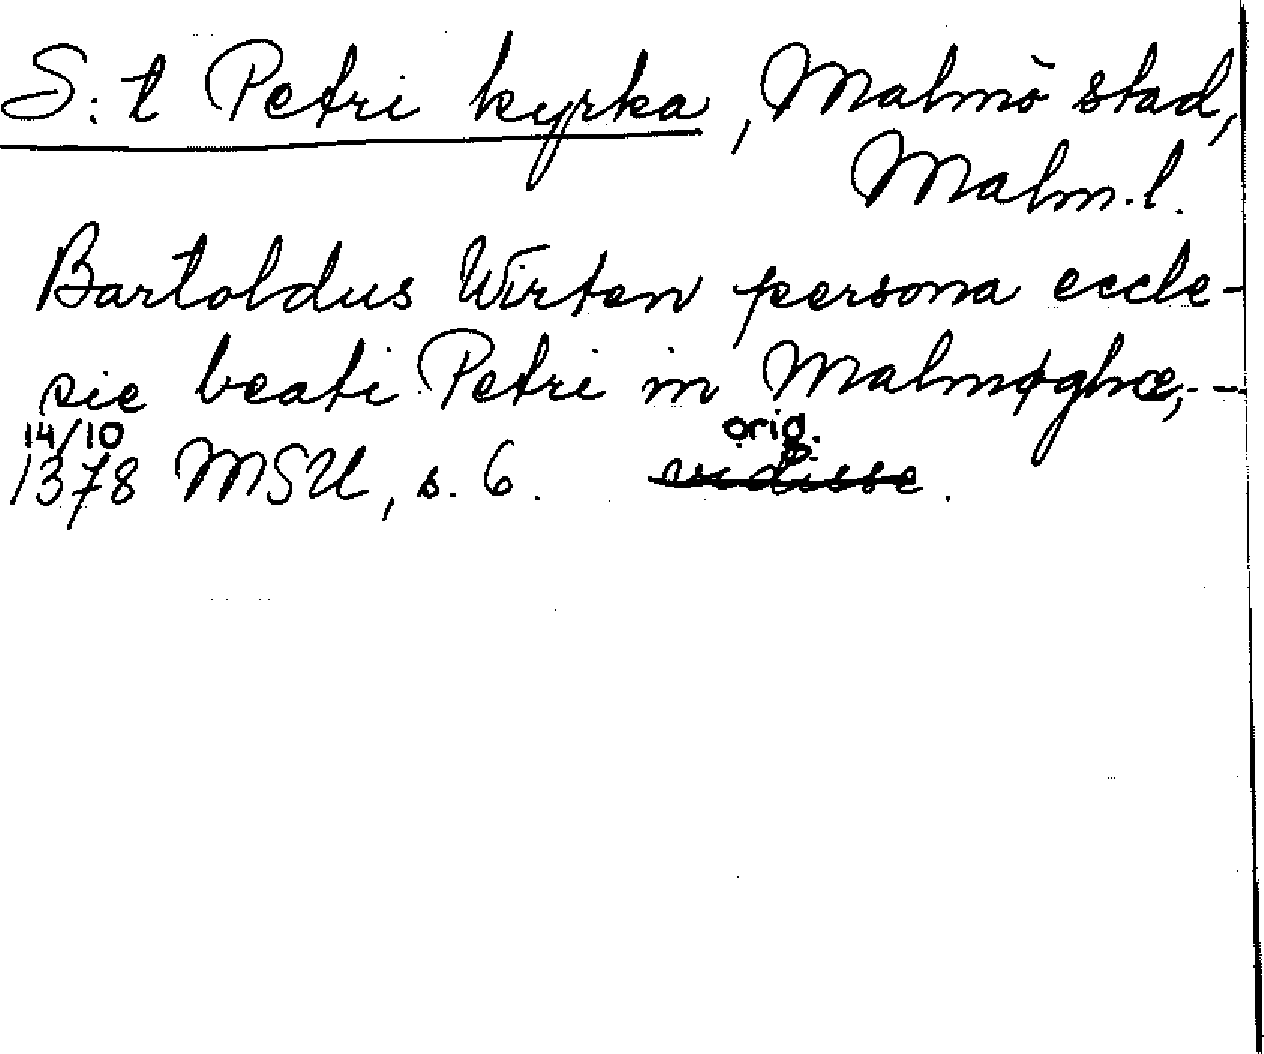 S:t Petri kyrka, Malmö stad,
Malm.l.
Bartoldus Wirten persona eccle-
sie beati Petri in Malmøghæ, --
14/10 orig.
1378 MSU, s. 6. vidisse.